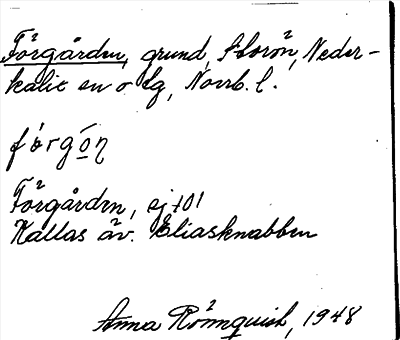 Förgården, grund, Storön, Neder-
kalix sn o lg, Norrb. l.
fǿrgǫ́ŋ
Förgårdn, ej 101
Kallas äv. Eliasknabben
Anna Rönnquist, 1948